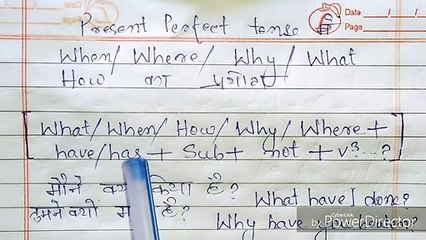 Present Perfect tense में
Date
Page
When/ Where/ Why/ What
How का प्रयोग
What/ When/ How/ Why/ Where +
have/has + Sub + not + v³...?
मैंने क्या किया है?
What have I done?
तुमने क्यों है?
Why have you
CyberLink
PowerDirector